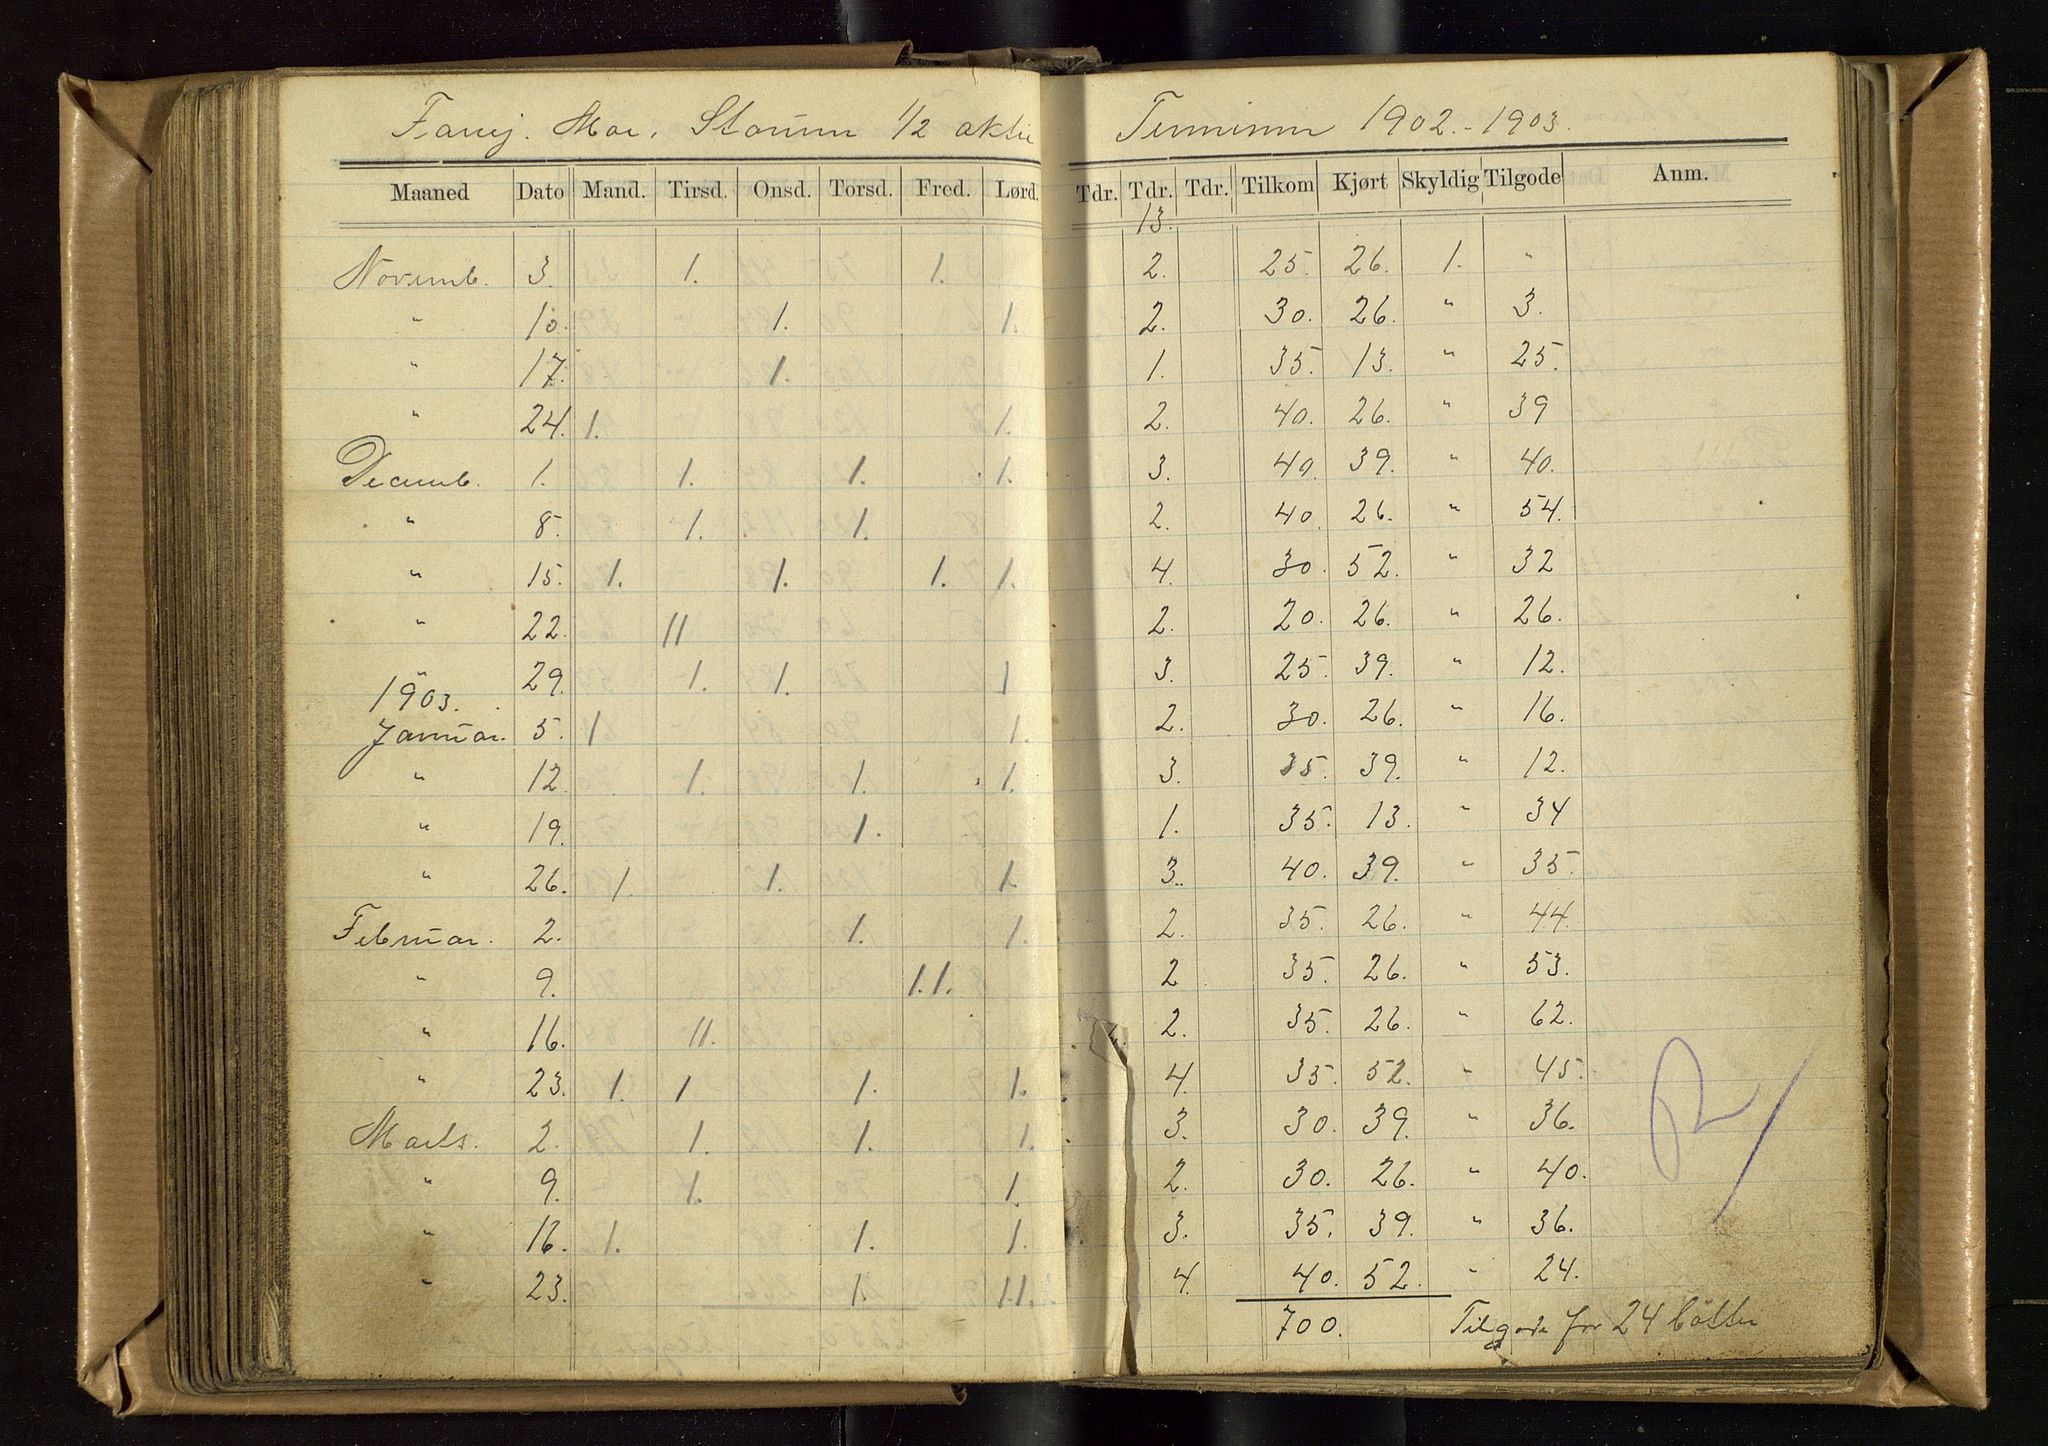 Farvej. Mar. Storum 1/2 aktie Terminen 1902.-1903.
Maaned Dato Mand. Tirsd. Onsd. Torsd. Fred. Lørd. Tdr. Tdr. Tdr. Tilkom Kjørt Skyldig Tilgode Anm.
13.
Novemb. 3. 1. 1. 2. 25. 26. 1. "
" 10. 1. 1. 2. 30. 26. " 3.
" 17. 1. 1. 35. 13. " 25.
" 24. 1. 1. 2. 40. 26. " 39
Decemb. 1. 1. 1. 1. 3. 40. 39. " 40.
" 8. 1. 1. 2. 40. 26. " 54.
" 15. 1. 1. 1. 1. 4. 30. 52. " 32
" 22. 11 2. 20. 26. " 26.
" 29. 1. 1. 1 3. 25. 39. " 12.
1903.
Januar. 5. 1 1. 2. 30. 26. " 16.
" 12. 1. 1. 1. 3. 35. 39. " 12.
" 19. 1. 1. 35. 13. " 34
" 26. 1. 1. 1. 3. 40. 39. " 35.
Februar. 2. 1. 1. 2. 35. 26. " 44.
" 9. 1.1. 2 35. 26. " 53.
" 16. 11. 2. 35. 26. " 62.
" 23. 1. 1 1. 1. 4. 35. 52. " 45.
Marts. 2. 1. 1. 1. 3. 30. 39. " 36.
" 9. 1. 1. 2. 30. 26. " 40.
" 16. 1. 1. 1. 3. 35. 39. " 36.
" 23. 1. 11. 4. 40. 52. " 24.
700. Tilgode for 24 bötter